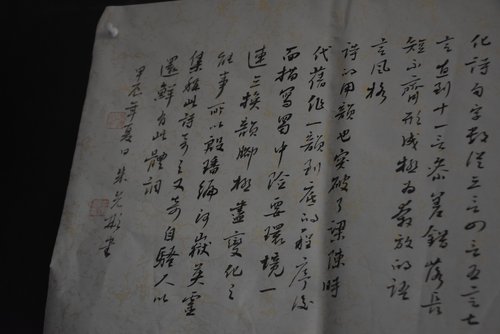 化詩句字數從三言四言五言七
言直到十一言參差錯落長
短不齊形成極為奔放的語
言風格
詩的用韻也突破了梁陳時
代舊作一韻到底的程序後
面描寫蜀中險要環境一
連三換韻腳極盡變化之
能事所以殷璠編河嶽英靈
集稱此詩奇之又奇自騷人以
還鮮有此體調
甲辰年夏日朱